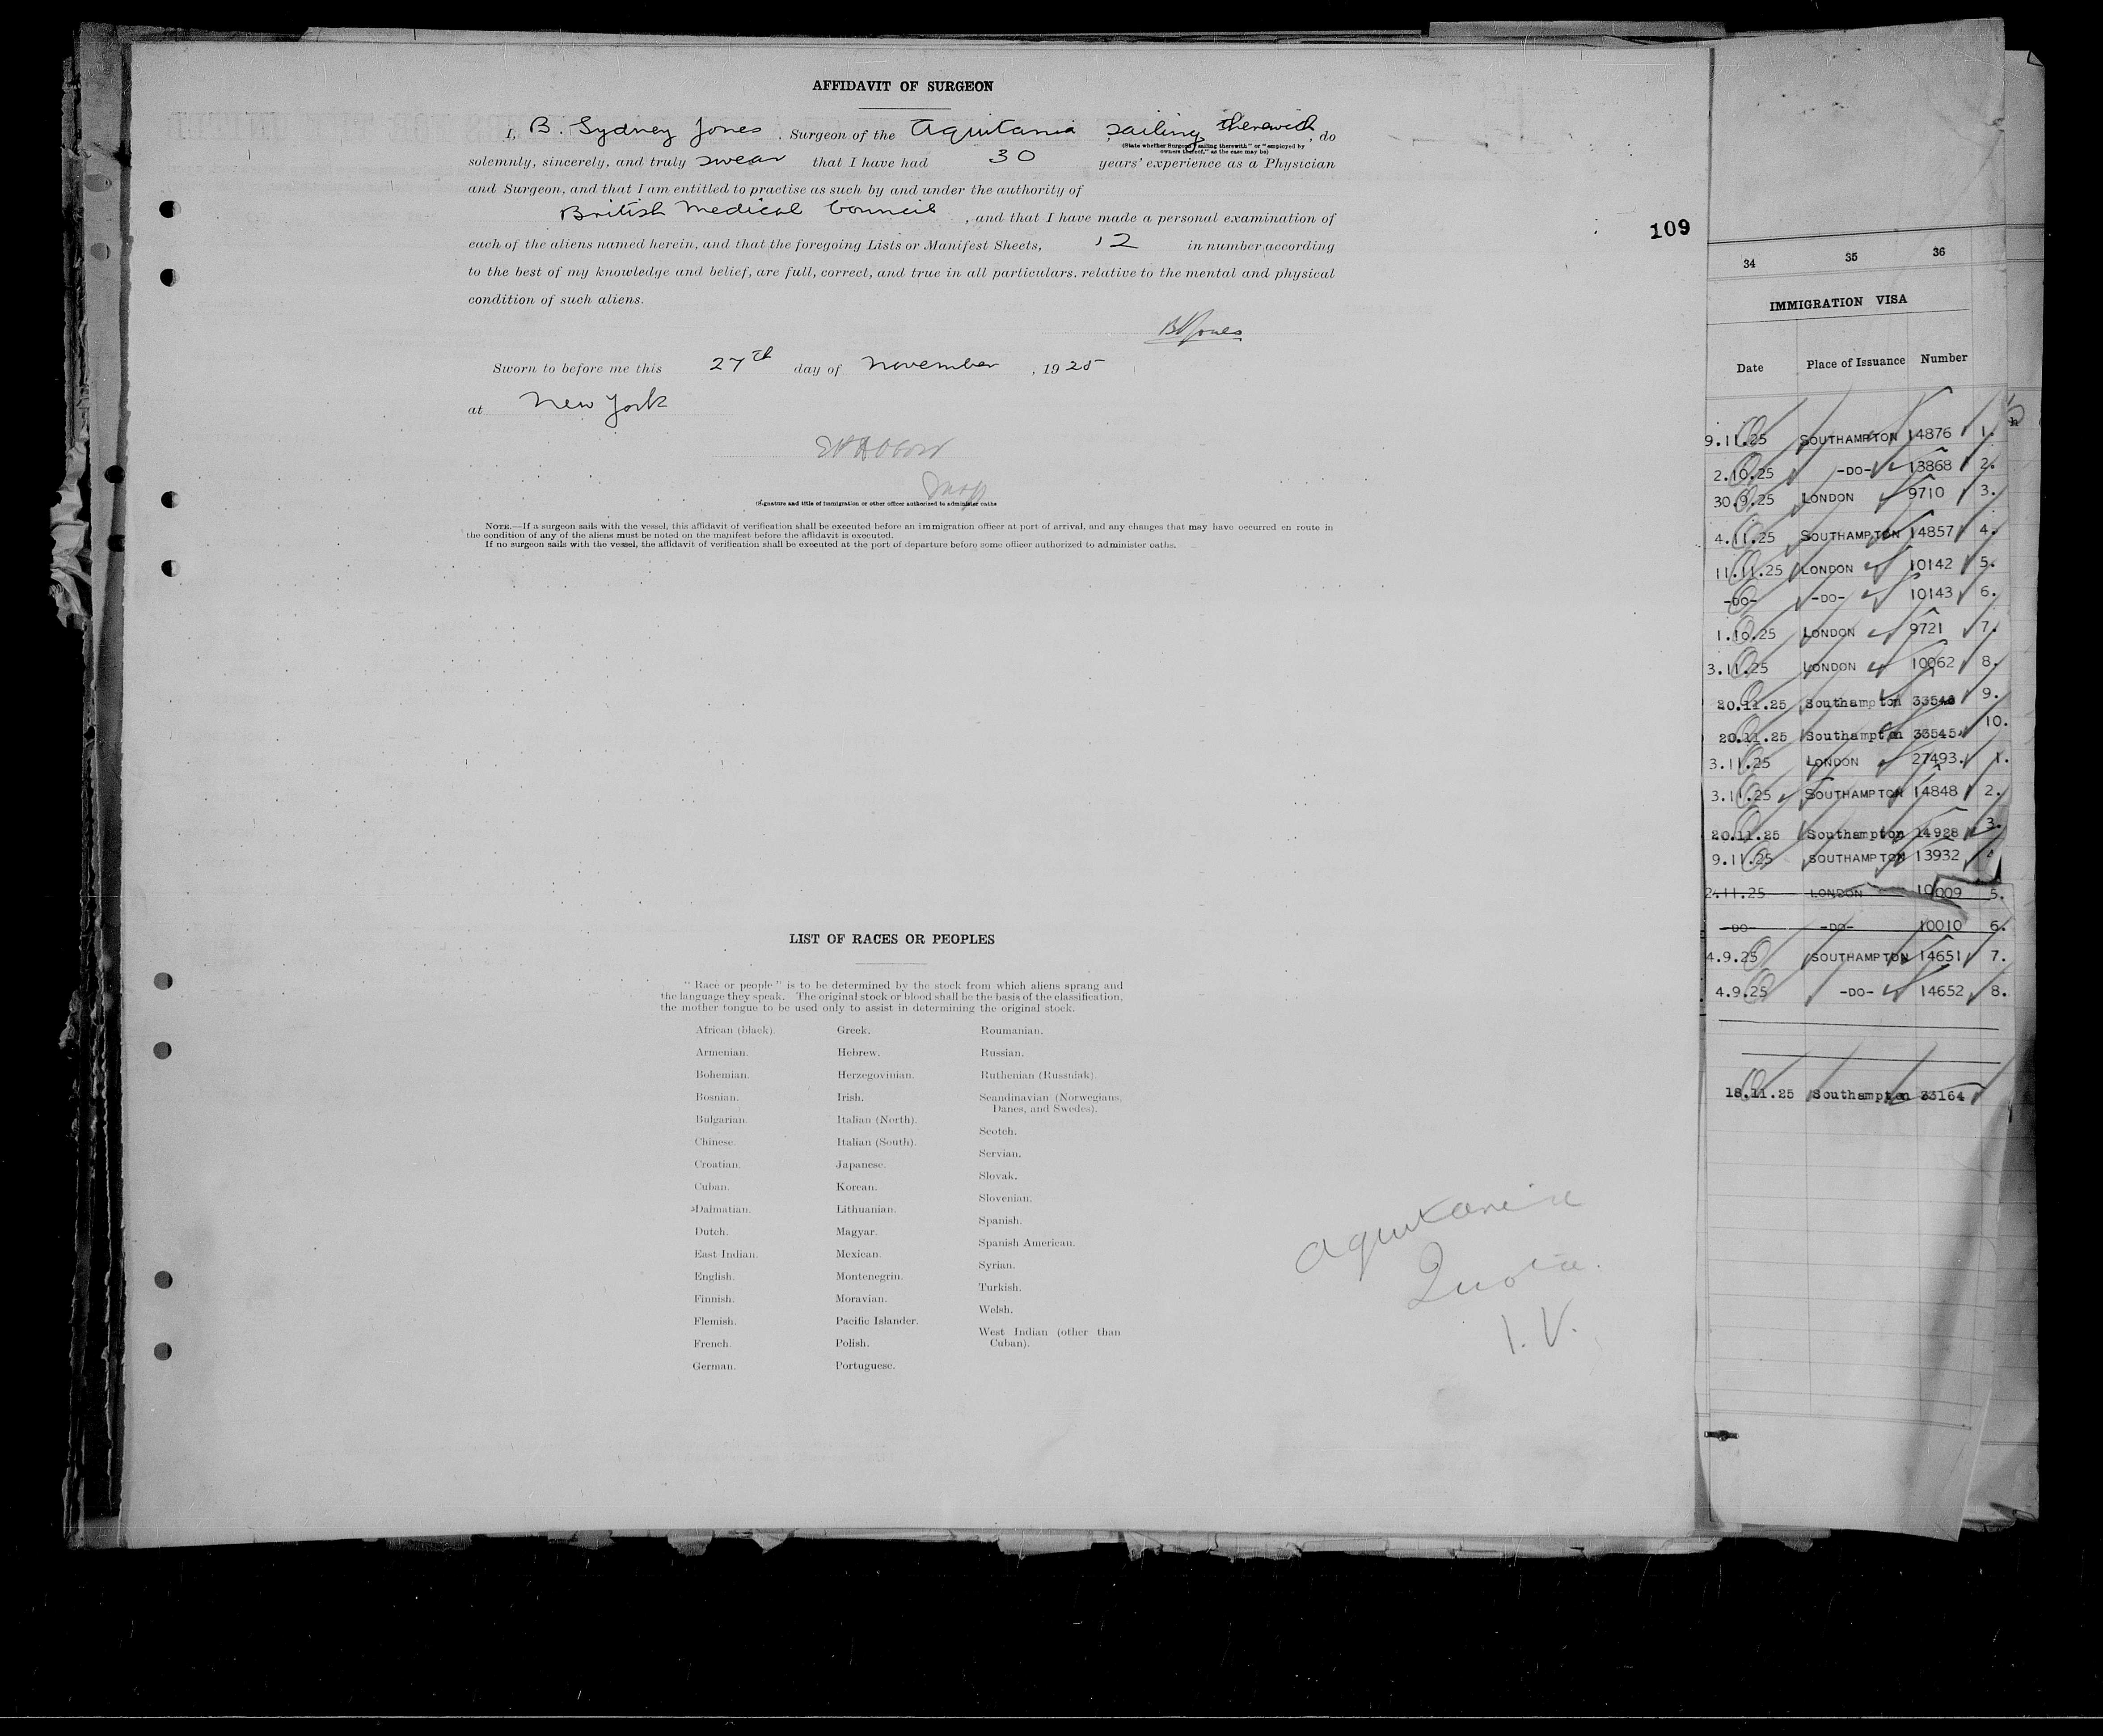 AFFIDAVIT OF SURGEON
I, B. Sydney Jones, Surgeon of the Aquitania, sailing therewith, do
(State whether Surgeon "sailing therewith" or "employed by
owners thereof," as the case may be)
solemnly, sincerely, and truly swear that I have had 30 years' experience as a Physician
and Surgeon, and that I am entitled to practise as such by and under the authority of
British Medical Council, and that I have made a personal examination of
each of the aliens named herein, and that the foregoing Lists or Manifest Sheets, 12 in number, according
to the best of my knowledge and belief, are full, correct, and true in all particulars. relative to the mental and physical
condition of such aliens.
BSJones
Sworn to before me this 27th day of November, 1925
at New York
(Signature and title of immigration or other officer authorized to administer oaths
NOTE.—If a surgeon sails with the vessel, this affidavit of verification shall be executed before an immigration officer at port of arrival, and any changes that may have occurred en route in
the condition of any of the aliens must be noted on the manifest before the affidavit is executed.
If no surgeon sails with the vessel, the affidavit of verification shall be executed at the port of departure before some officer authorized to administer oaths.
LIST OF RACES OR PEOPLES
"Race or people" is to be determined by the stock from which aliens sprang and
the language they speak. The original stock or blood shall be the basis of the classification,
the mother tongue to be used only to assist in determining the original stock.
African (black).
Armenian.
Bohemian.
Bosnian.
Bulgarian.
Chinese.
Croatian.
Cuban.
Dalmatian.
Dutch.
East Indian.
English.
Finnish.
Flemish.
French.
German.
Greek.
Hebrew.
Herzegovinian.
Irish.
Italian (North).
Italian (South).
Japanese.
Korean.
Lithuanian.
Magyar.
Mexican.
Montenegrin.
Moravian.
Pacific Islander.
Polish.
Portuguese.
Roumanian.
Russian.
Ruthenian (Russniak).
Scandinavian (Norwegians,
Danes, and Swedes).
Scotch.
Servian.
Slovak.
Slovenian.
Spanish.
Spanish American.
Syrian.
Turkish.
Welsh.
West Indian (other than
Cuban).
Aquitania
Quota.
I.V.
109
34 35 36
IMMIGRATION VISA
Date Place of Issuance Number
9.11.25 SOUTHAMPTON 14876 1.
2.10.25 -DO- 13868 2.
30.9.25 LONDON 9710 3.
4.11.25 SOUTHAMPTON 14857 4.
11.11.25 LONDON 10142 5.
-DO- -DO- 10143 6.
1.10.25 LONDON 9721 7.
3.11.25 LONDON 10062 8.
20.11.25 Southampton 9.
20.11.25 Southampton 33545 10.
3.11.25 LONDON 27493. 1.
3.11.25 SOUTHAMPTON 14848 2.
20.11.25 Southampton 14928 3.
9.11.25 SOUTHAMPTON 13932 4
2.11.25 LONDON 10009 5.
-DO- -DO- 10010 6.
4.9.25 SOUTHAMPTON 14651 7.
4.9.25 -DO- 14652 8.
18.11.25 Southampton 33164